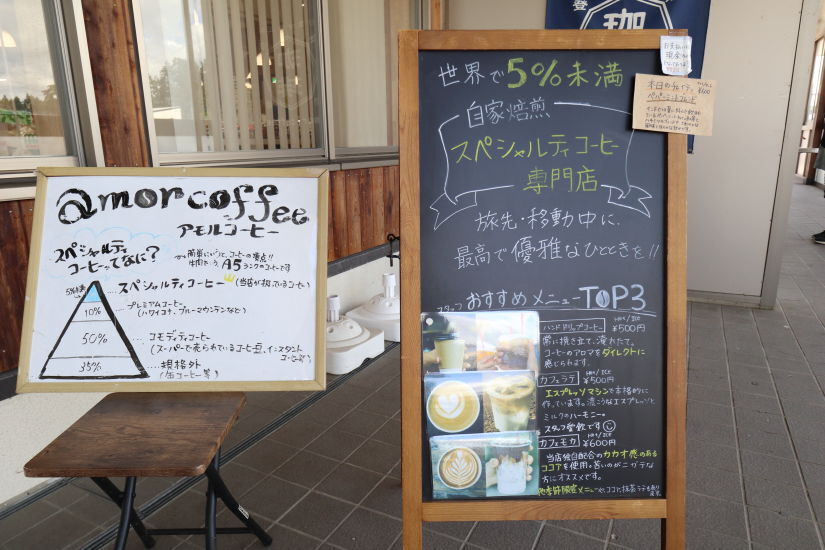 amorcoffee
アモルコーヒー
スペシャルティ
コーヒーってなに?
簡単にいうと、コーヒーの頂点!!
A5ランクのコーヒーです
5%未満
スペシャルティコーヒー(当店が扱っているコーヒー)
10%
プレミアムコーヒー
(ハワイコナ、ブルーマウンテンなど)
50%
コモディティコーヒー
(スーパーで売られているコーヒー豆、インスタント
コーヒー等)
35%
規格外
(缶コーヒー等)
登
珈
世界で5%未満
自家焙煎
スペシャルティコーヒー
専門店
旅先・移動中に、
最高で優雅なひとときを!!
スタッフ
おすすめメニューTOP3
ハンドドリップコーヒー
HOT/ICE
¥500円
常に挽き立て、淹れたて。
コーヒーのアロマをダイレクトに
感じられます。
カフェラテ
HOT/ICE
¥500円
エスプレッソマシンで本格的に
作っています。濃こうなエスプレッソと
ミルクのハーモニー。
スタッフ愛飲です
カフェモカ
HOT/ICE
¥600円
当店独自配合のカカオ感のある
ココアを使用。苦いのがニガテな
方にオススメです。
他季節限定メニューや、ココア、抹茶ラテも
本日のチャイティ
¥600
ペパーミントブレンド
お支払いは
現金